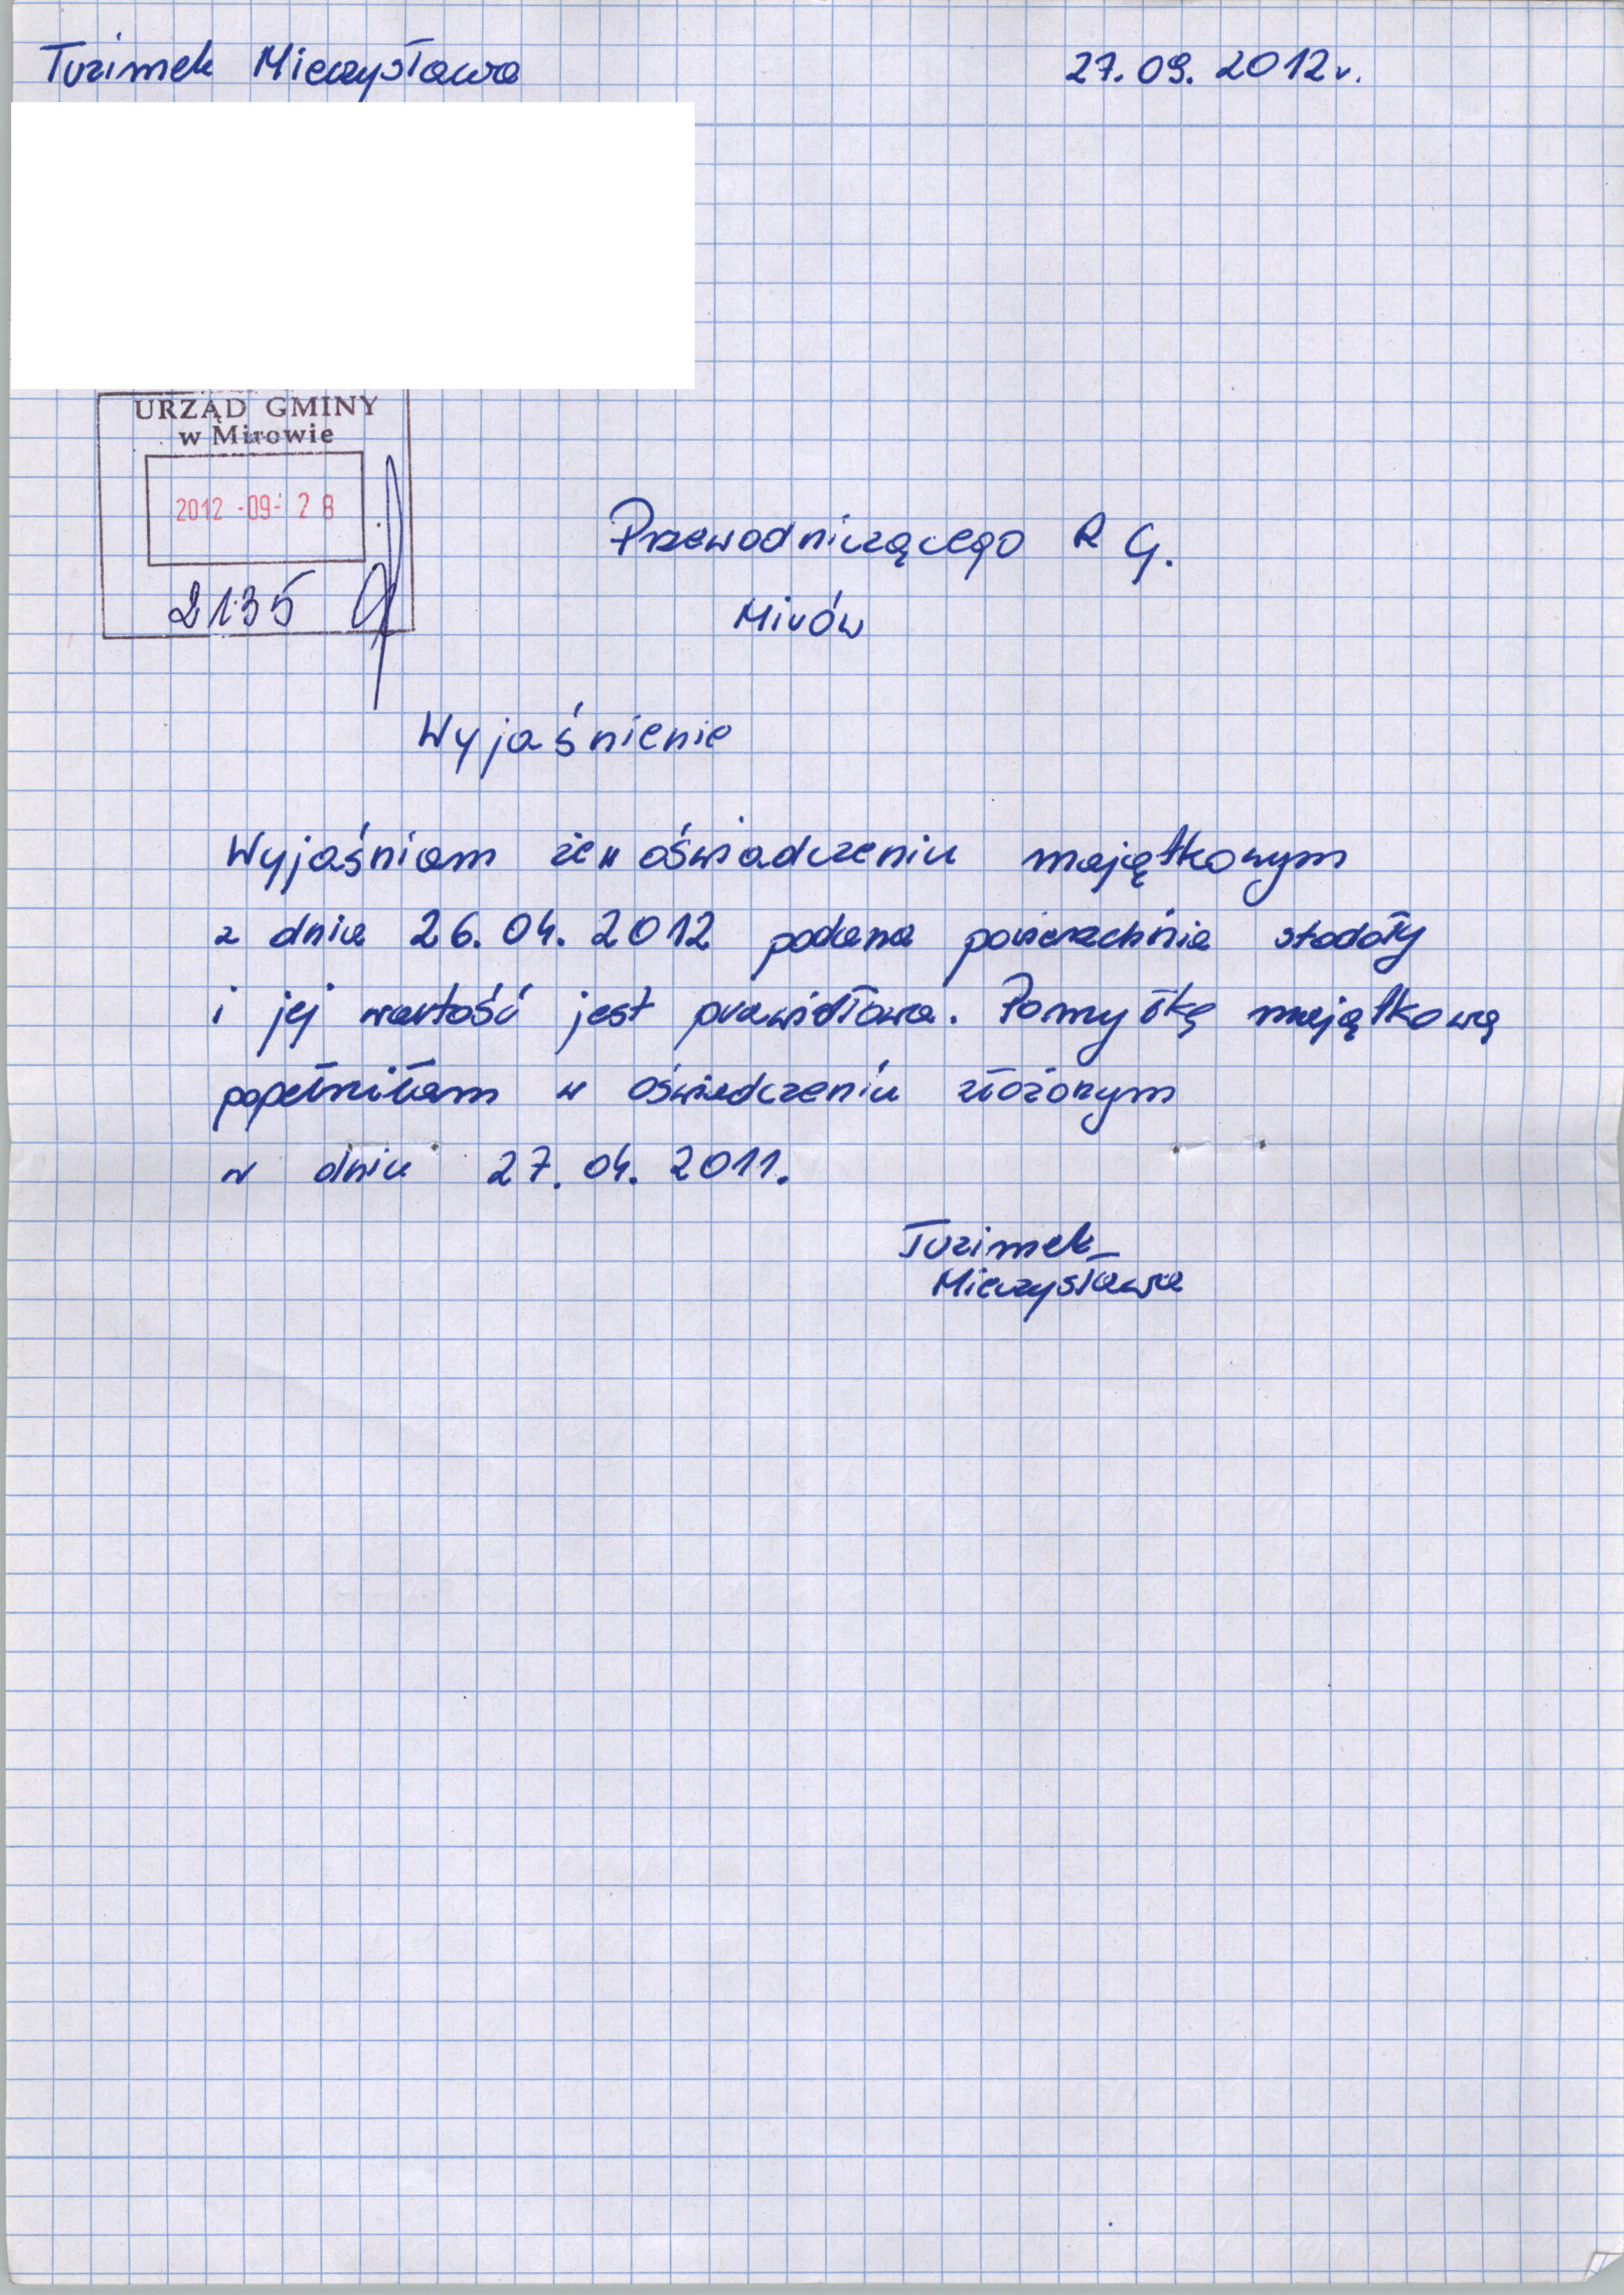 Tuzimek Mieczysława
27.09.2012r.
URZĄD GMINY
w Mirowie
2012 -09- 28
2135
Przewodniczącego R G.
Mirów
Wyjaśnienie
Wyjaśniam że w oświadczeniu majątkowym
z dnia 26.04.2012 podana powierzchnia stodoły
i jej wartość jest prawidłowa. Pomyłkę majątkową
popełniłam w oświadczeniu złożonym
w dniu 27.04.2011.
Tuzimek
Mieczysława